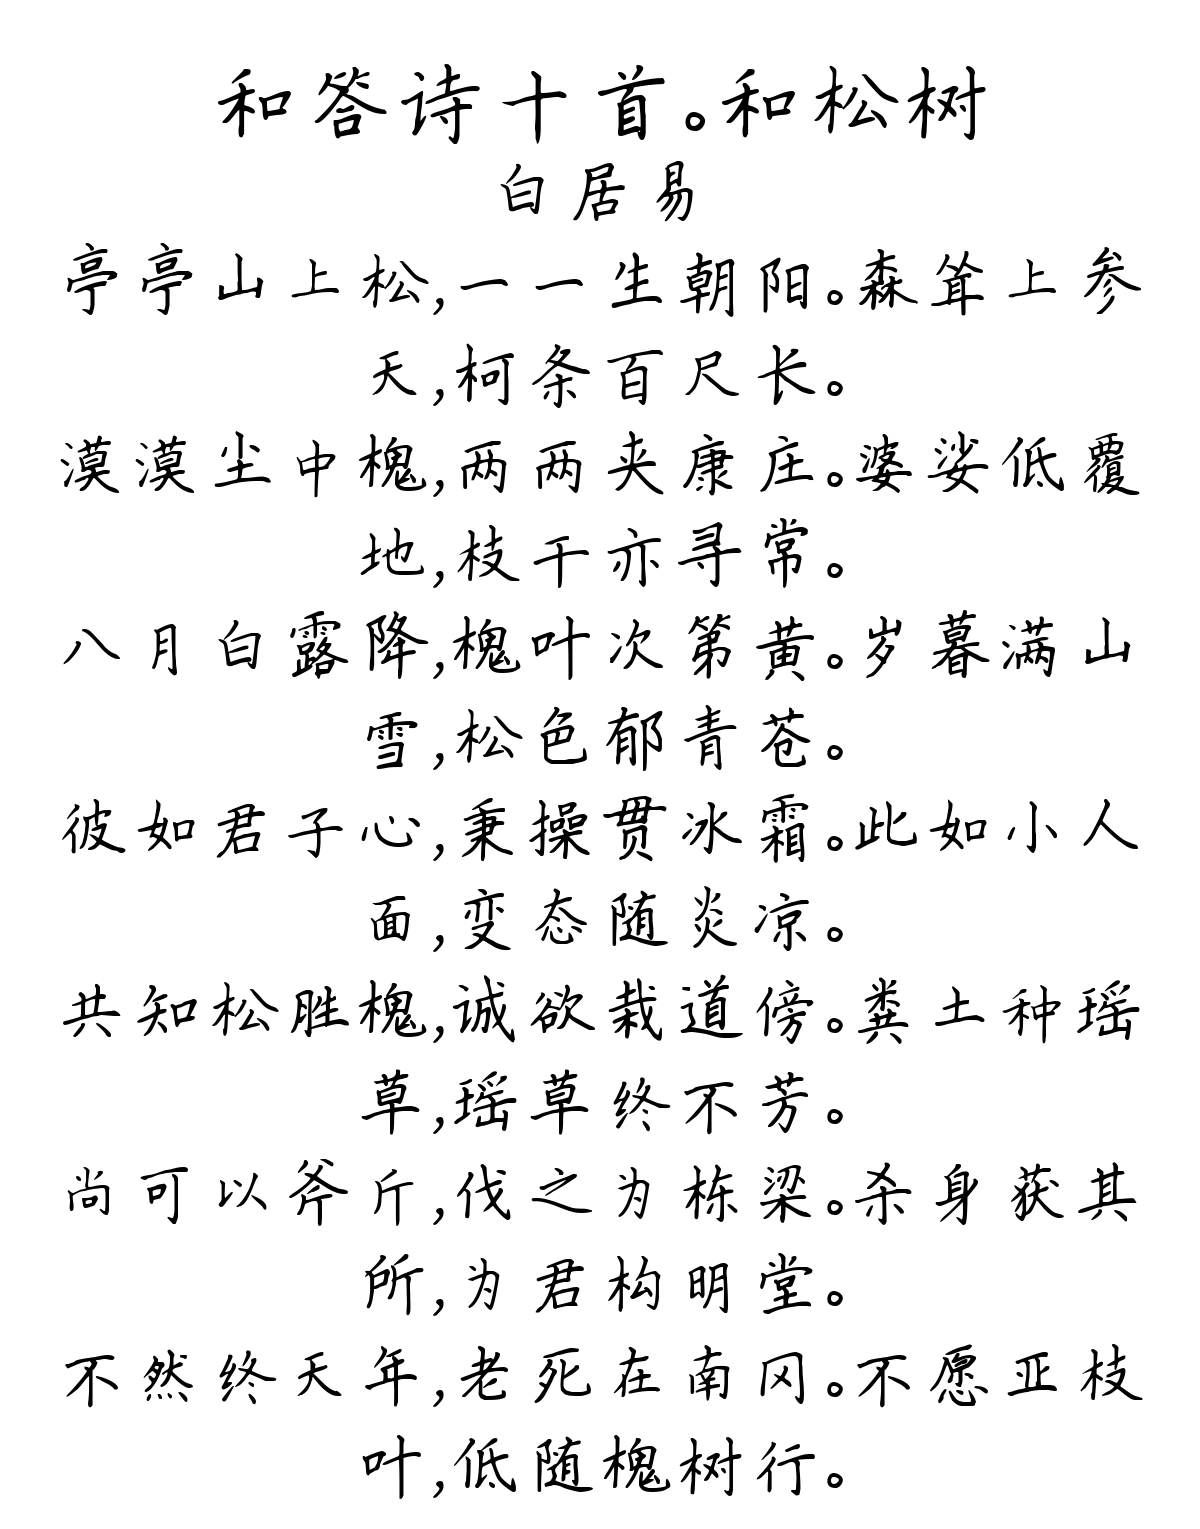 和答诗十首。和松树
白居易
亭亭山上松,一一生朝阳。森耸上参
天,柯条百尺长。
漠漠尘中槐,两两夹康庄。婆娑低覆
地,枝干亦寻常。
八月白露降,槐叶次第黄。岁暮满山
雪,松色郁青苍。
彼如君子心,秉操贯冰霜。此如小人
面,变态随炎凉。
共知松胜槐,诚欲栽道傍。粪土种瑶
草,瑶草终不芳。
尚可以斧斤,伐之为栋梁。杀身获其
所,为君构明堂。
不然终天年,老死在南冈。不愿亚枝
叶,低随槐树行。